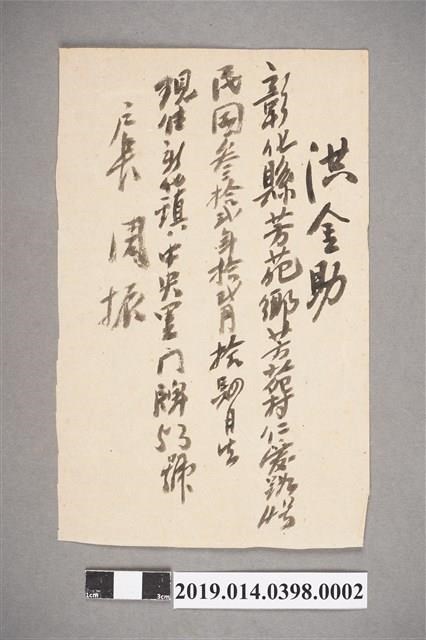 洪金助
彰化縣芳苑鄉芳苑村仁愛路 號
民國叁拾貳年拾貳月拾 日生
現住新化鎮中央里门牌53號
户長 周振
1cm 3cm
2019.014.0398.0002